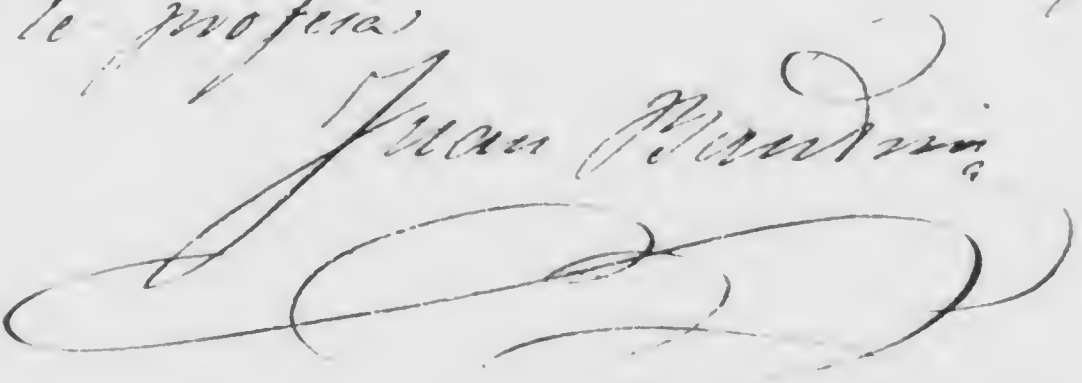 le profesa
Juan Bandini